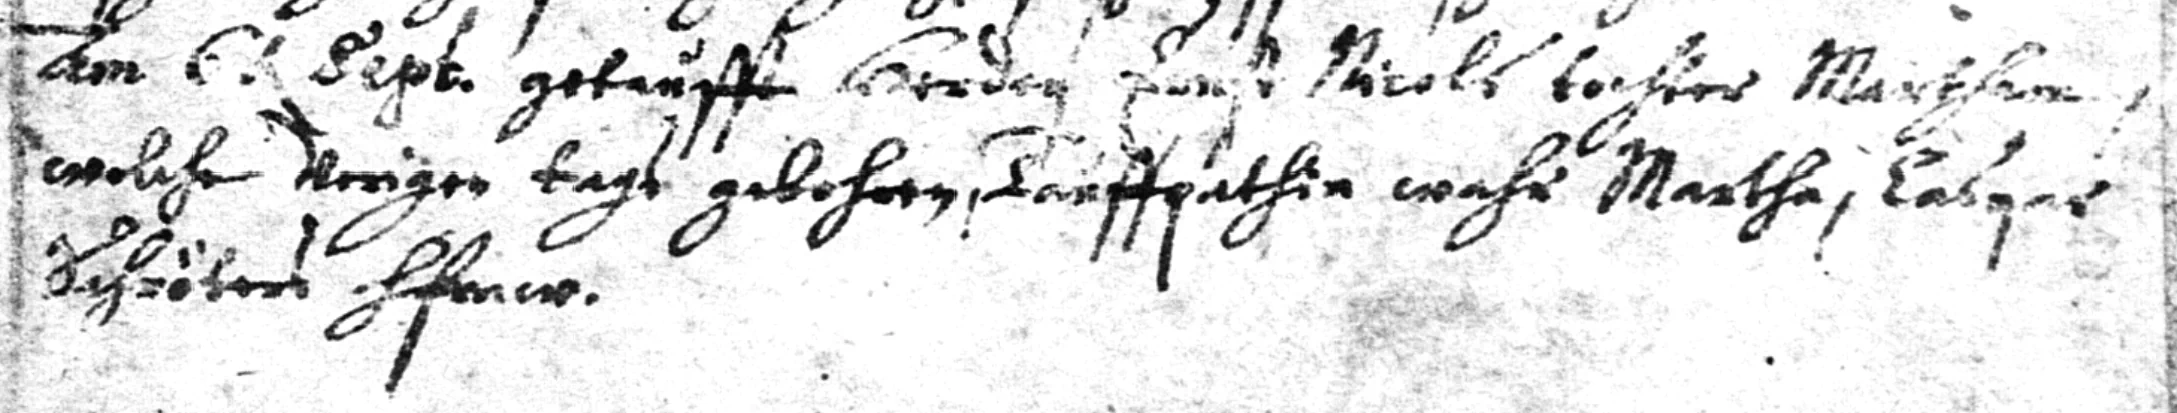 den 6. Sept. getaufft worden Ernst Nicols tochter Martha,
welche vorigen tags gebohren, Tauffpathin wahr Martha, Caspar
Schröters Ehfraw.